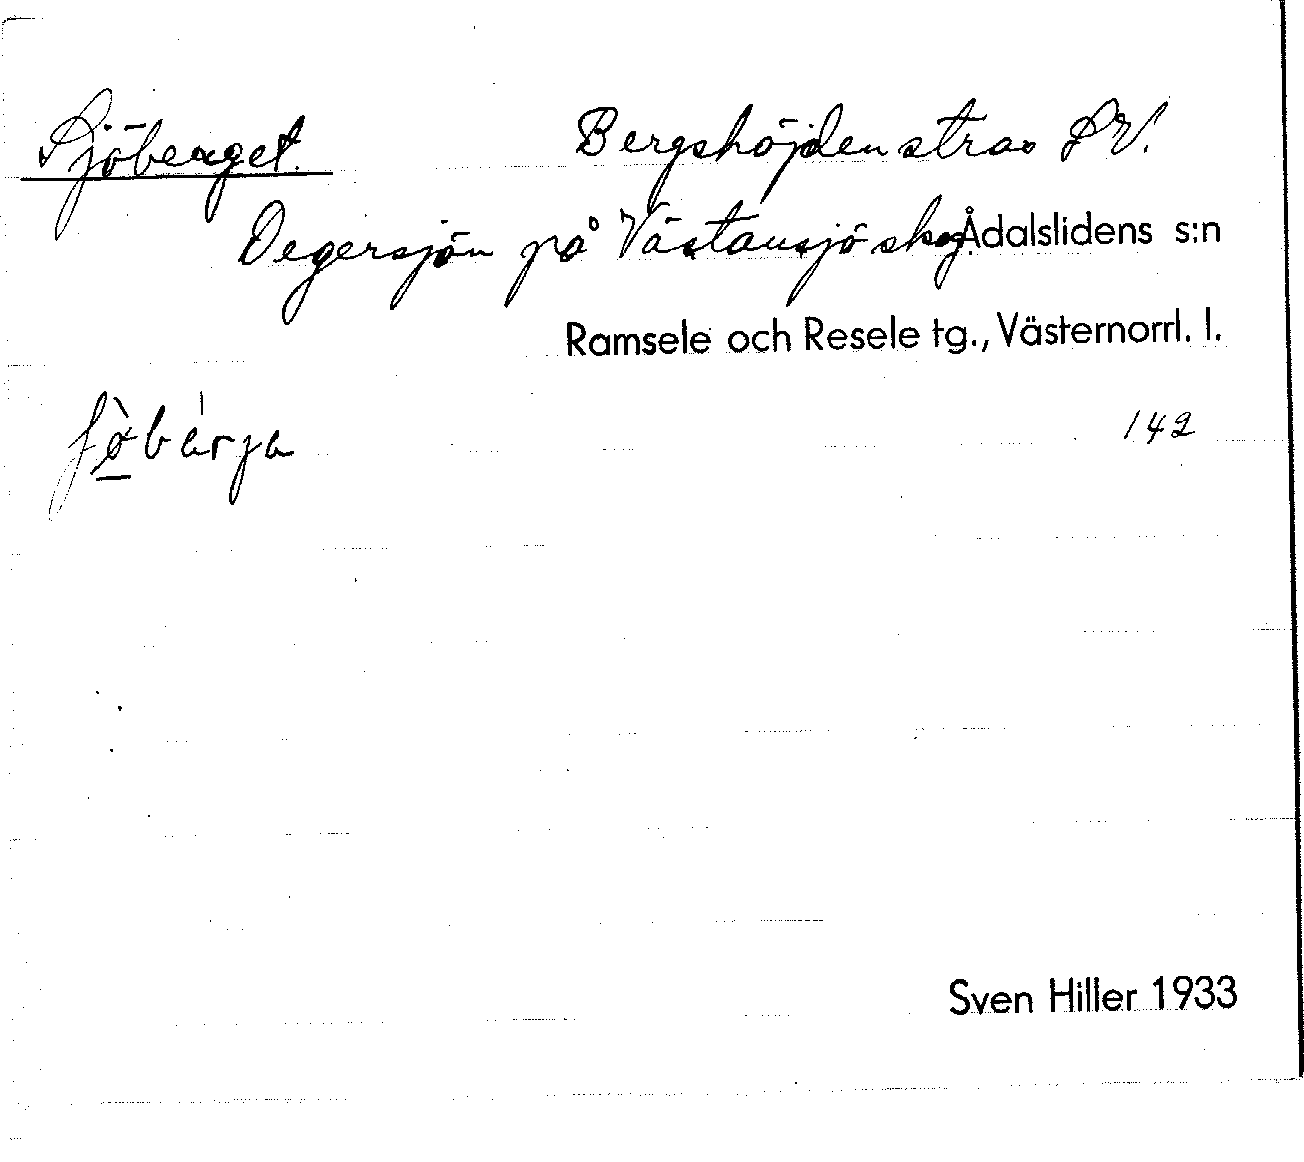 Sjöberget. Bergshöjden strax SV.
Degersjön på Västansjö skog. Ådalslidens s:n
Ramsele och Resele tg., Västernorrl. l.
ʃø̀bárja 142
Sven Hiller 1933